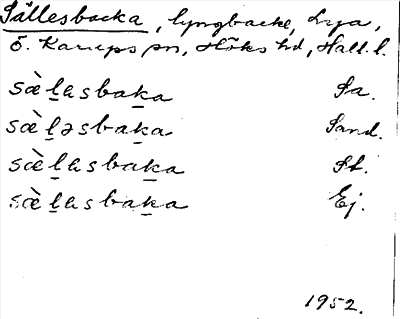 Sällesbacka, lyngbacke, Lya,
Ö. Karups sn, Höks hd, Hall. l.
sæ̀ḻasbaḵa Sa.
sæ̀ḻəsbaḵa Sand.
sæ̀ḻasbaḵa St.
sæ̀ḻasbaḵa Ej.
1952.